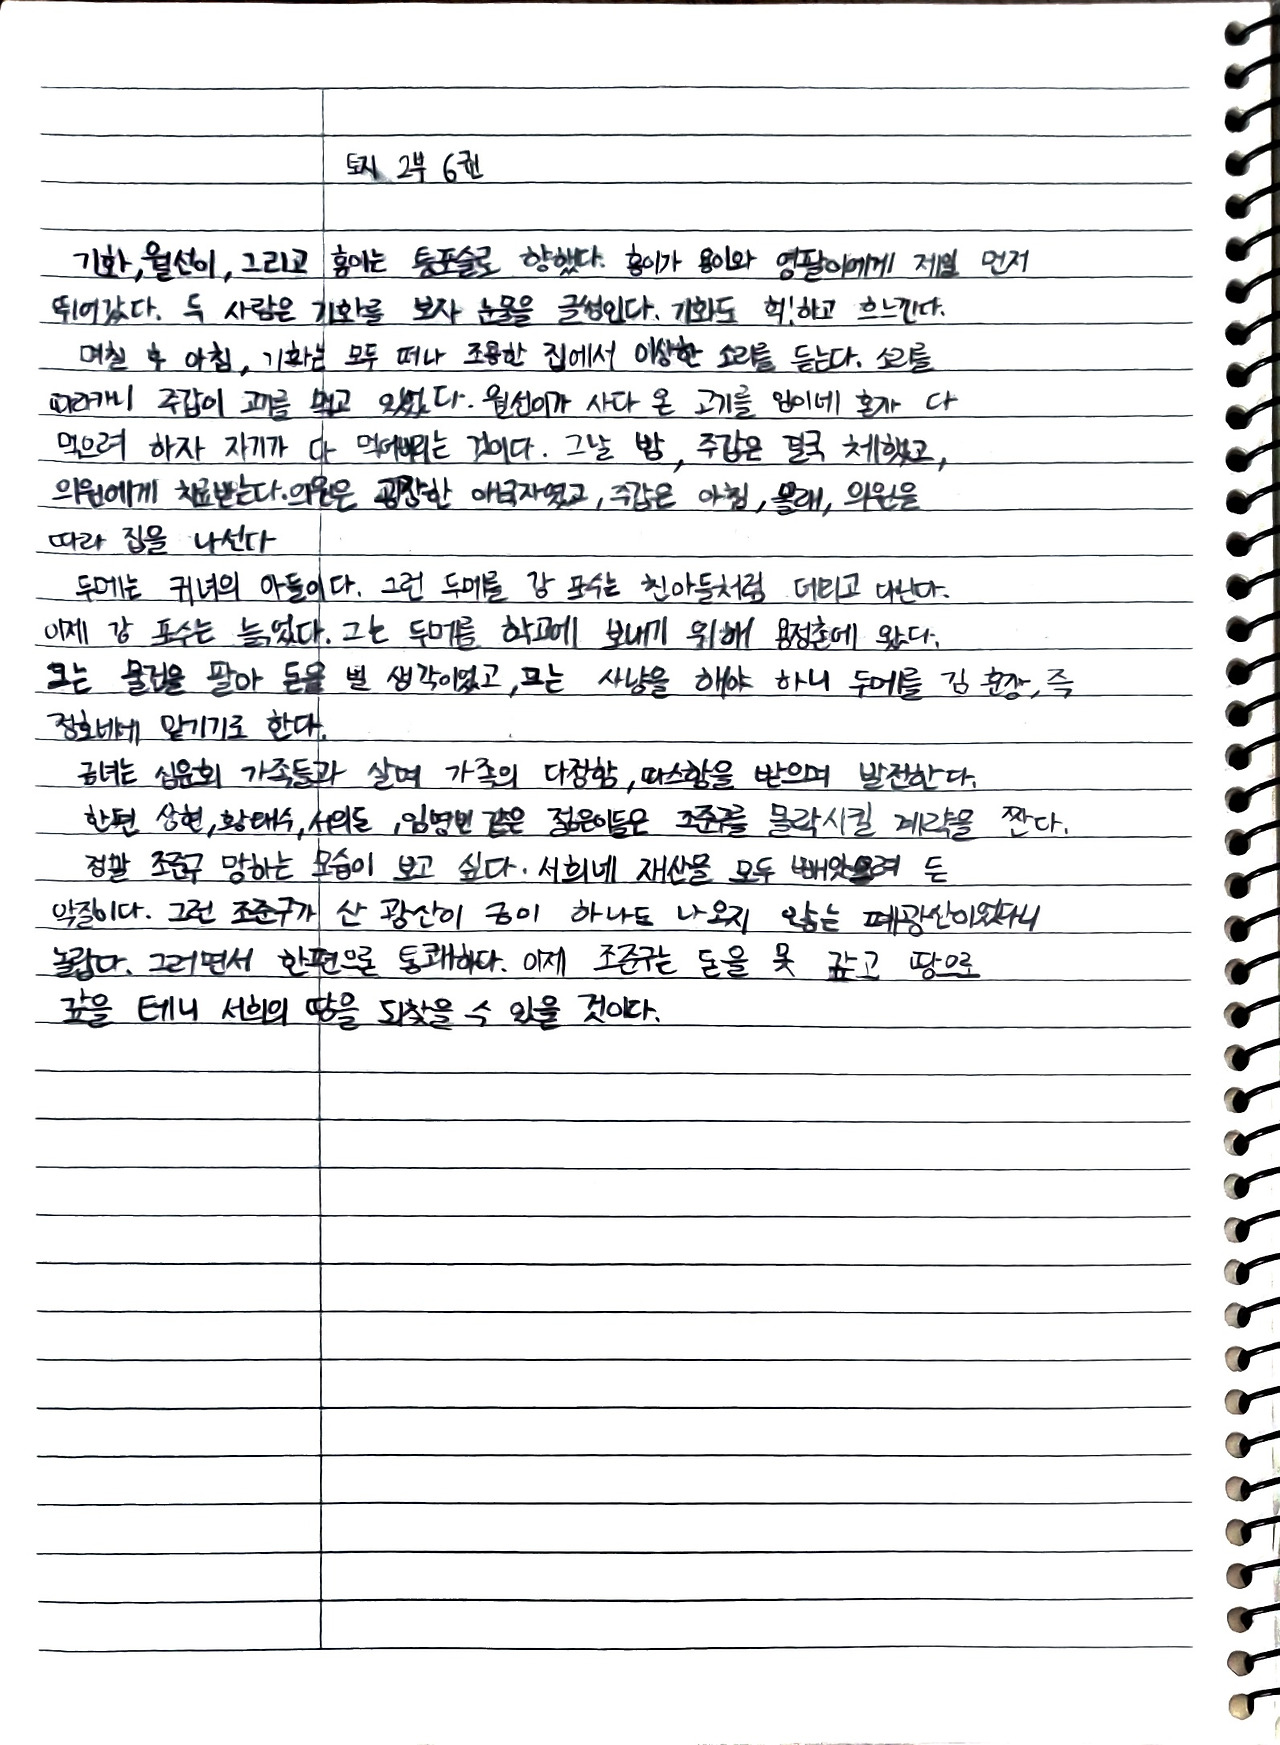 토지 2부 6권
기화, 월선이, 그리고 홍이는 퉁포슬로 향했다. 홍이가 용이와 영팔이에게 제일 먼저
뛰어갔다. 두 사람은 기화를 보자 눈물을 글썽인다. 기화도 헉!하고 흐느낀다.
며칠 후 아침, 기화는 모두 떠나 조용한 집에서 이상한 소리를 듣는다. 소리를
따라가니 주갑이 고기를 먹고 있었다. 월선이가 사다 온 고기를 임이네 혼자 다
먹으려 하자 자기가 다 먹어버리는 것이다. 그날 밤, 주갑은 결국 체했고,
의원에게 치료받는다. 의원은 굉장한 애국자였고, 주갑은 아침, 몰래, 의원을
따라 집을 나선다
두메는 귀녀의 아들이다. 그런 두메를 강 포수는 친아들처럼 데리고 다닌다.
이제 강 포수는 늙었다. 그는 두메를 학교에 보내기 위해 용정촌에 왔다.
그는 물건을 팔아 돈을 벌 생각이었고, 또는 사냥을 해야 하니 두메를 김 훈장, 즉
정호네에 맡기기로 한다.
금녀는 심운회 가족들과 살며 가족의 다정함, 따스함을 받으며 발전한다.
한편 상현, 황태수, 서의돈, 임명빈 같은 젊은이들은 조준구를 몰락시킬 계략을 짠다.
정말 조준구 망하는 모습이 보고 싶다. 서희네 재산을 모두 빼앗으려 든
악질이다. 그런 조준구가 산 광산이 금이 하나도 나오지 않는 폐광산이었다니
놀랍다. 그러면서 한편으론 통쾌하다. 이제 조준구는 돈을 못 갚고 땅으로
갚을 테니 서희의 땅을 되찾을 수 있을 것이다.